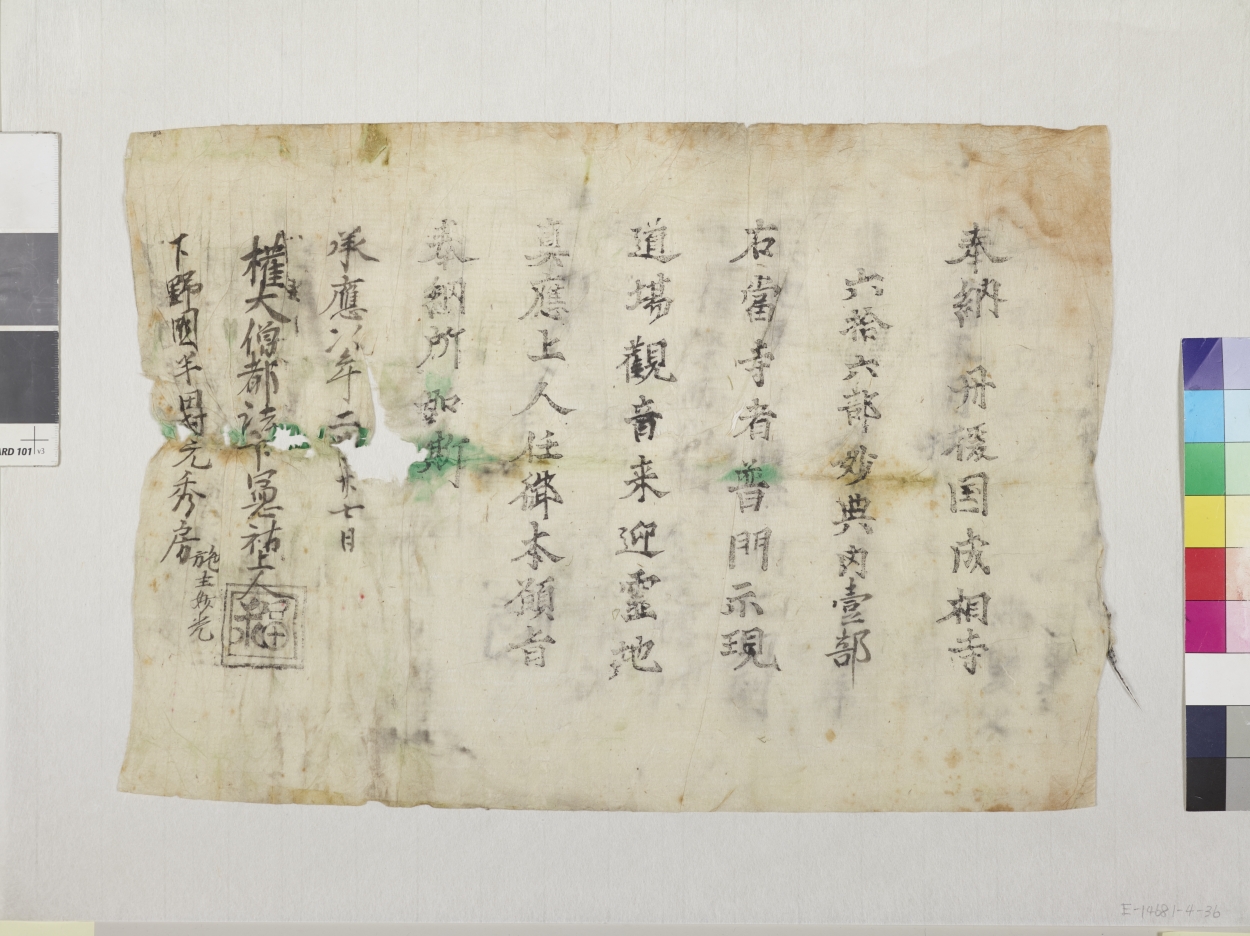 奉納 丹後国成相寺
六拾六部妙典内壹部
右當寺者普門示現
道場觀音来迎霊地
真應上人住御本願者
奉納所如斯
承應 年二 廿七日
權大僧都 下 祐上人
下野國羊田村元秀房
施主妙光
ARD 101 v3
E-14681-4-36